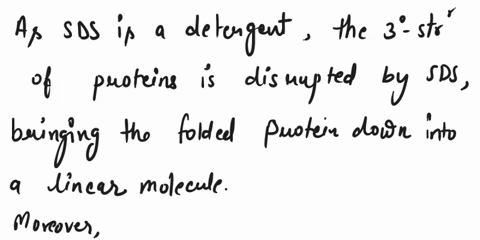 As SDS is a detergent, the 3°-strʳ
of proteins is disrupted by SDS,
bringing the folded protein down into
a linear molecule.
Moreover,